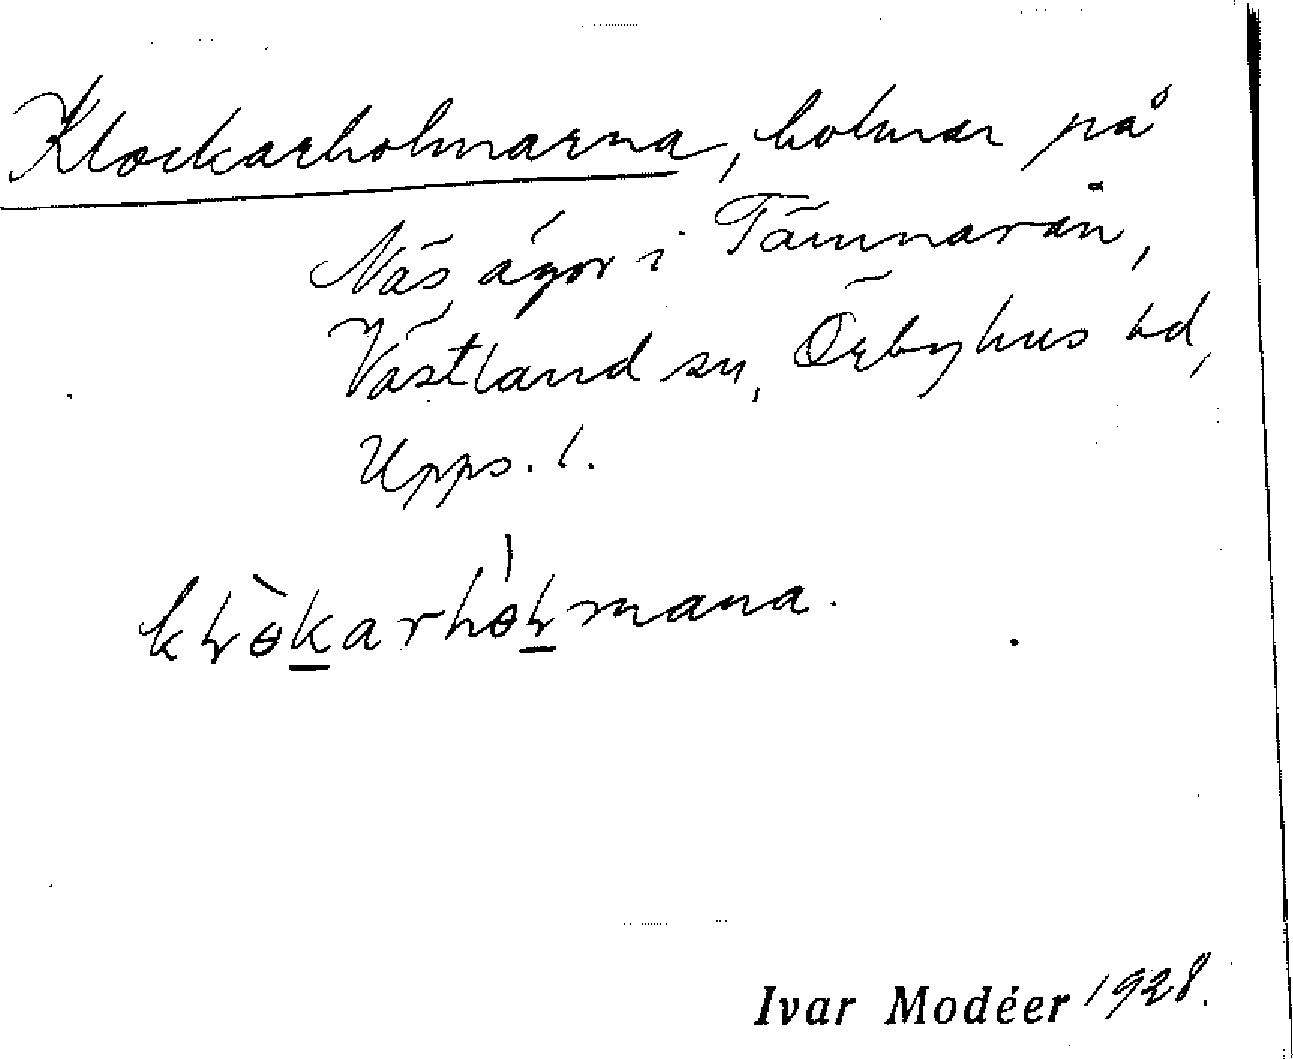 Klockarholmarna, holmar på
Näs ägor i Tämnarån,
Västland sn, Örbyhus hd,
Upps. l.
kɽɵ̀karhɵ̀ɽmana.
Ivar Modéer 1928.